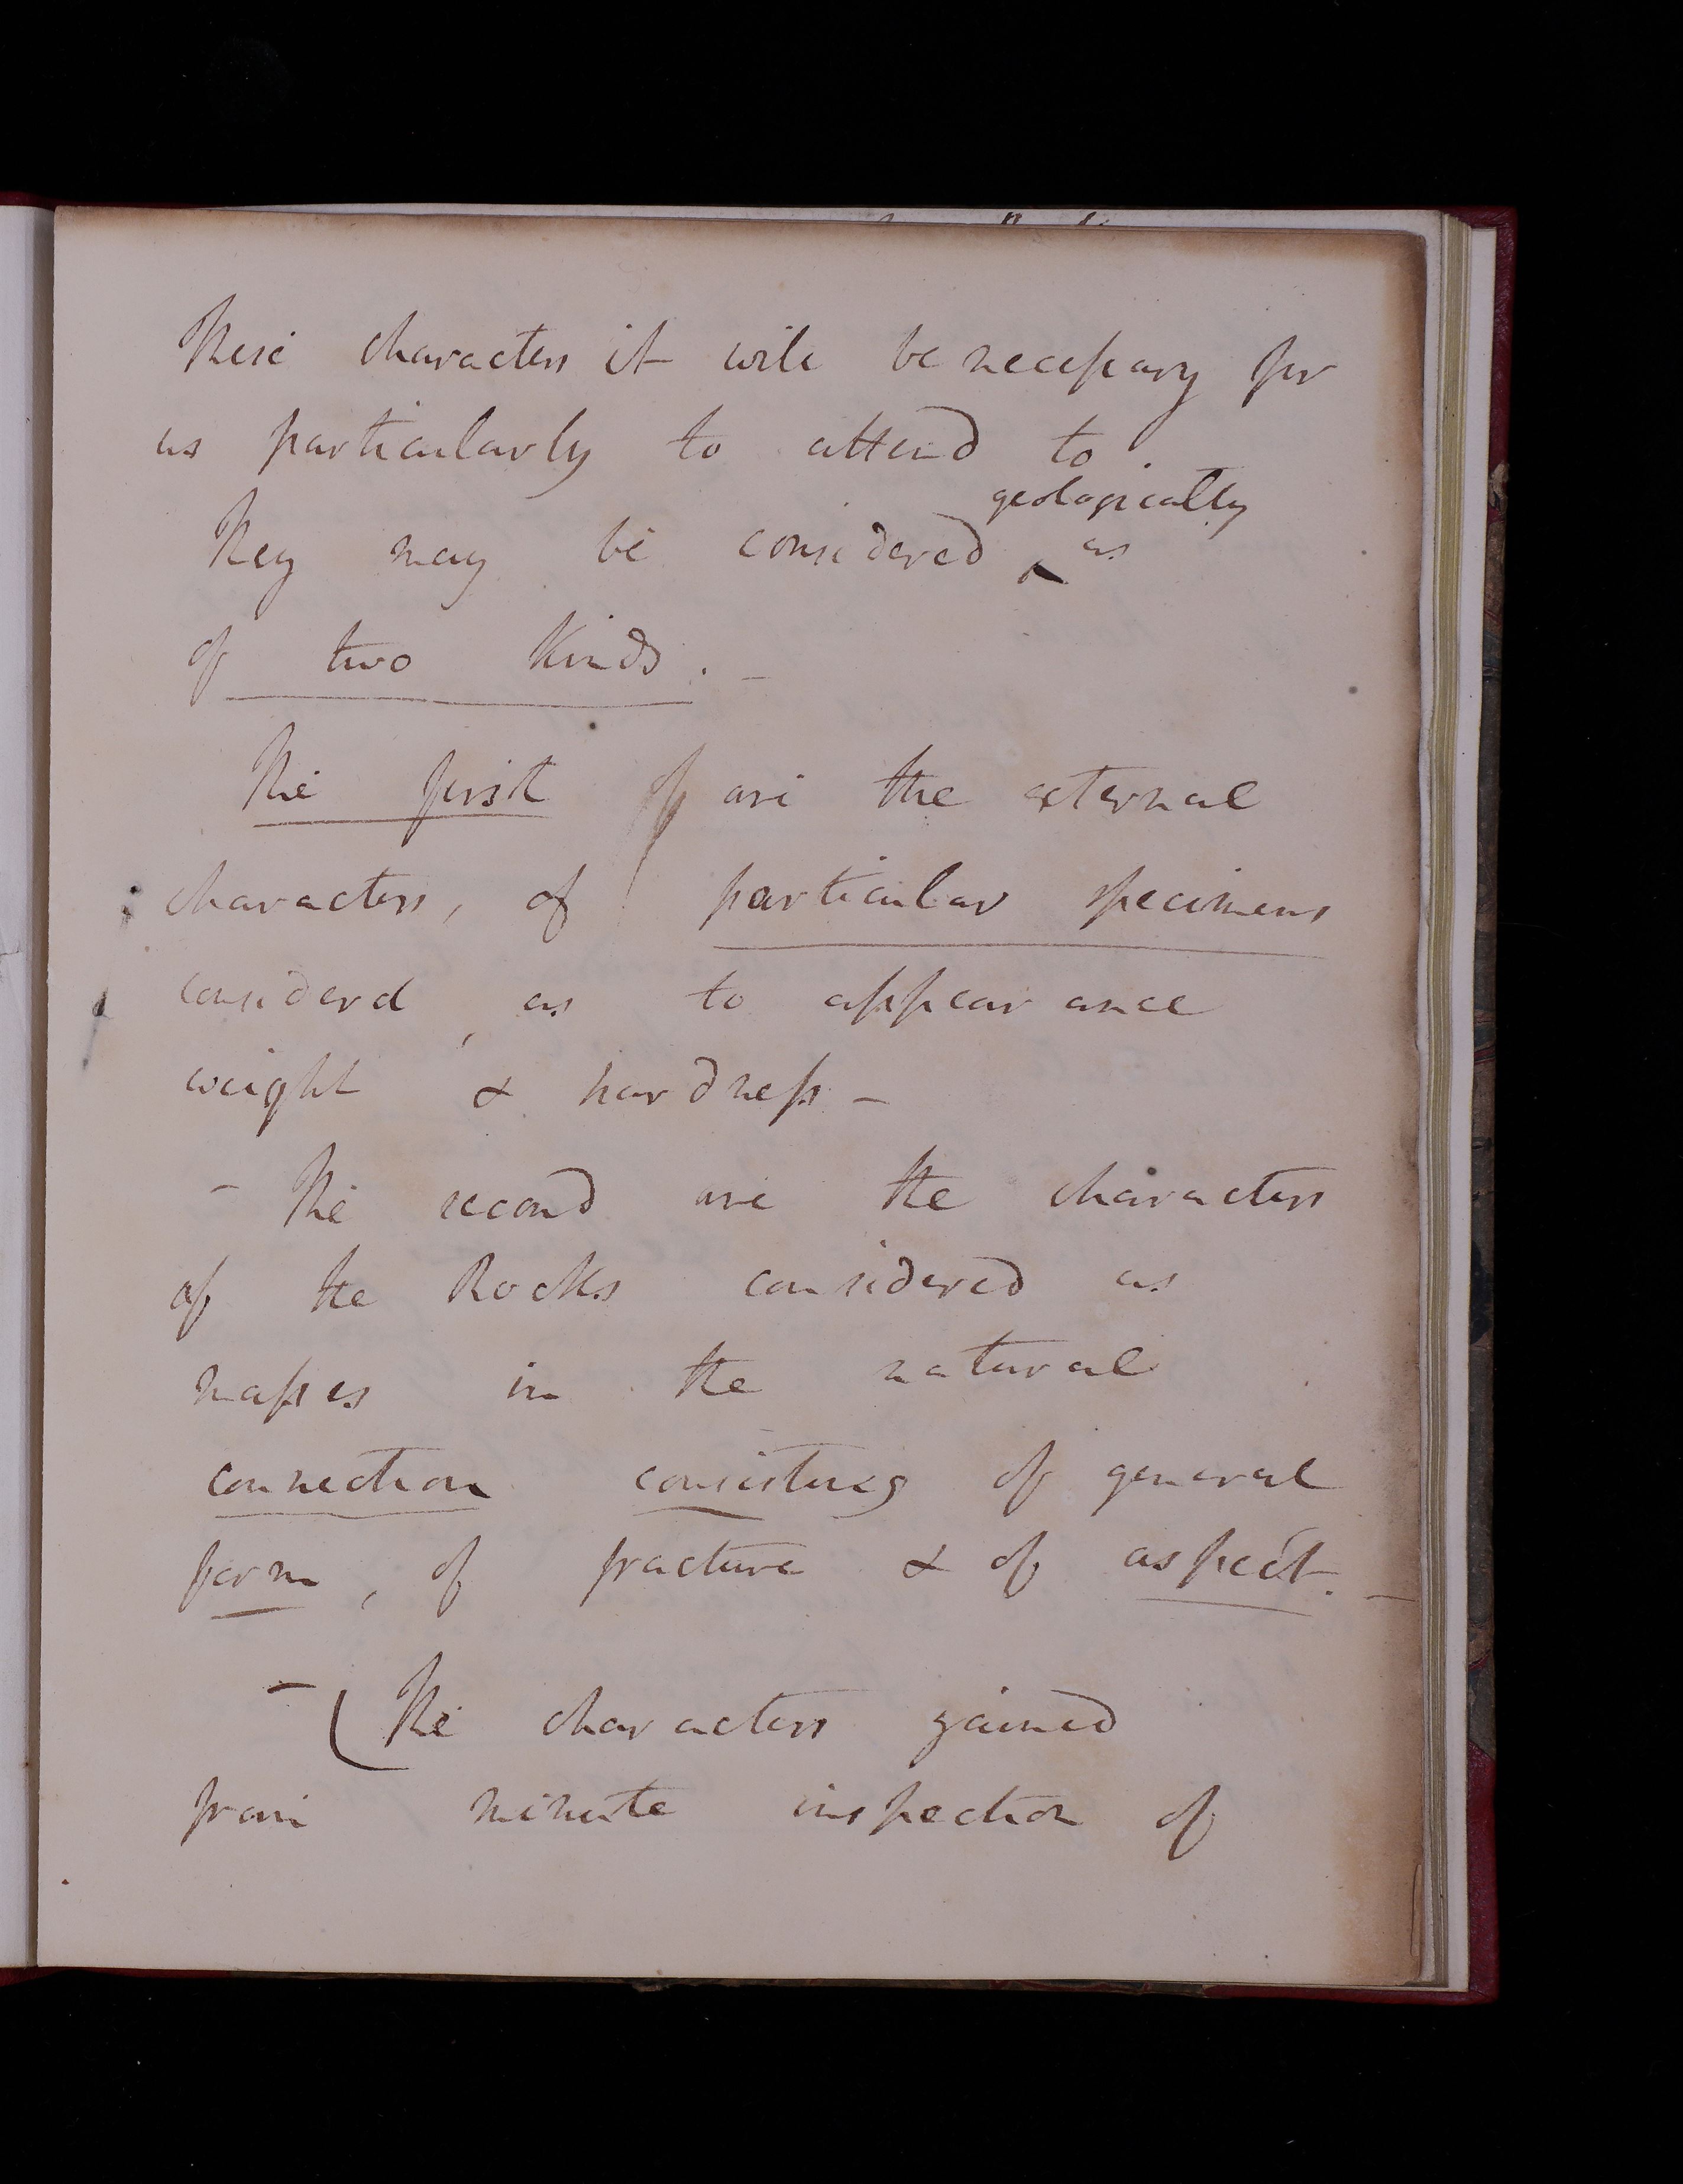 These characters it will be necessary for
us particularly to attend to.
geologically
They may be considered ^ as
of two Kinds. –
The first of are the external
characters, of particular specimens
considerd, as to appearance
weight & hardness –
– The second are the characters
of the Rocks considered as
masses in the natural
connection consisting of general
form, of fracture & of aspect. –
– (The characters gained
from minute inspection of